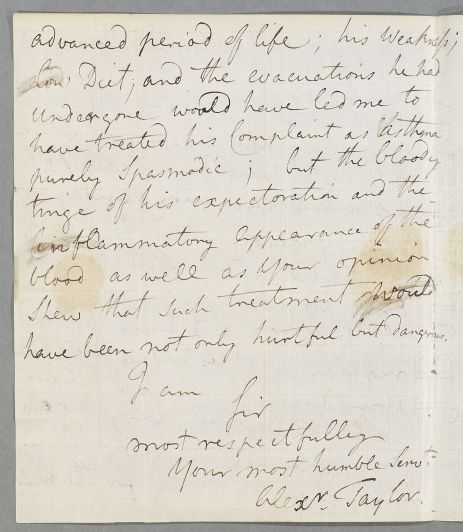 advanced period of life; his weakness;
low Diet; and the evacuations he had
undergone would have led me to
have treated his Complaint as Asthma
purely Spasmodic; but the bloody
tinge of his expectoration and the
inflammatory appearance of the
blood as well as your opinion
shew that such treatment would
have been not only hurtful but dangerous.
I am
Sir
most respectfully
Your most humble Servt.
Alexr. Taylor.